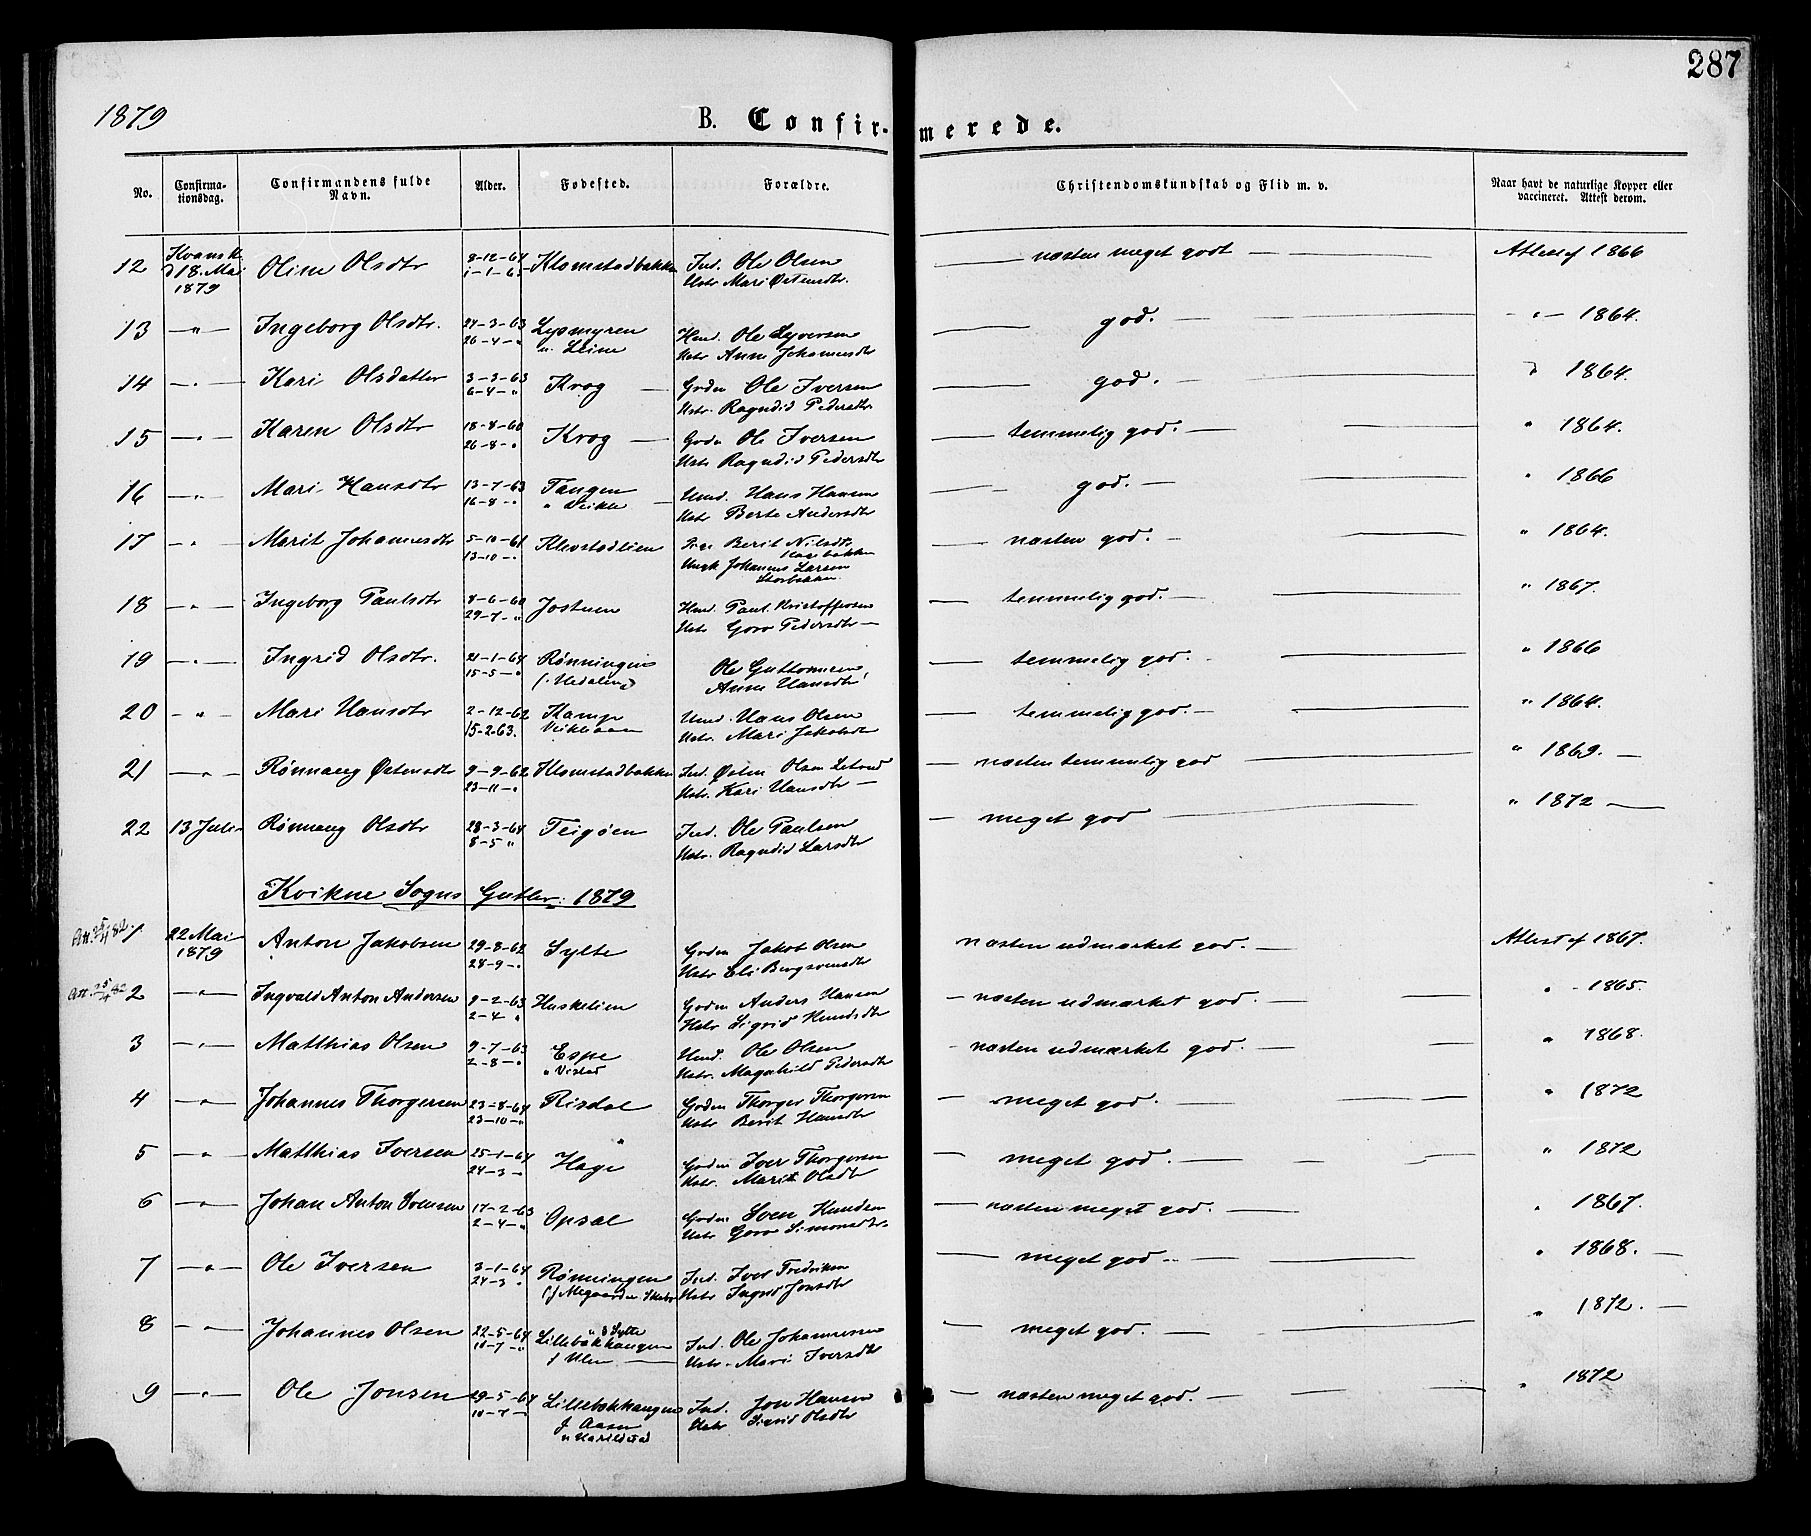 287
1879
B. Confirmerede.
No. Confirmationsdag. Confirmandens fulde Navn. Alder. Fødested. Forældre. Christendomskundskab og Flid m. v. Naar havt de naturlige Kopper eller vaccineret. Attest derom.
12 d 18. Mai 1879 Oline Olsdtr 8-12-64 1-1-65 Klomstadbakken Ind. Ole Olsen Hstr Mari Østensdtr. — næsten meget godt — Attest af 1866
13 —"— Ingeborg Olsdtr. 24-3-63 26-4-" Lysmyren u. Leine Hmd. Ole Syversen Hstr Anne Johannesdtr — god. — -"- 1864.
14 —"— Kari Olsdatter 3-3-63 6-4-" Krog — Grdm Ole Iversen Hstr. Ragndid Pedersdtr. — god. — " 1864.
15 —"— Karen Olsdtr 18-8-60 26-8-" Krog — Grdm Ole Iversen Hstr Ragndid Pedersdtr — temmelig god. — " 1864.
16 —"— Mari Hansdtr 13-7-63 16-8-" Tangen " Veikle — Hmd. Hans Hansen Hstr Berte Andersdtr — god. — " 1866
17 —"— Marit Johannesdtr 5-10-61 13-10-" Klevstadlien Pige Berit Nilsdtr. Hagebakken Ungk Johannes Larsen Storbakken. — næsten god. — " 1864.
18 —"— Ingeborg Paulsdtr 8-6-60 29-7-" Jostuen Hmd. Paul Kristoffersen Hstr Goro Pedersdtr — — temmelig god. — " 1867.
19 —"— Ingrid Olsdtr. 21-1-64 15-5-" Rønningen Ole Guttormsen Anne Hansdtr — temmelig god. — " 1866
20 —"— Mari Hansdtr 2-12-62 15-2-63. Kamp Hmd. Hans Olsen Hstr. Mari Jakobsdtr — temmelig god. — " 1864.
21 —"— Rønnaug Østensdtr 9-9-62 23-11-" Klomstadbakken Ind. Østen Olsen Hstr. Kari Hansdtr — — næsten temmelig god — " 1869. —
22 13 Juli Rønnaug Olsdtr 28-3-64 8-5 " Teigøen Ind. Ole Paulsen Hstr. Ragndid Larsdtr — meget god — " 1872 —
Kvikne Sogns Gutter: 1879
Att. 25/4 82. 1 22 Mai 1879 Anton Jakobsen 29-8-62 28-9-" Sylte Grdm Jakob Olsen Hstr Eli Bergsvensdtr næsten udmærket god. — Attest af 1867.
Att. 25/4 82 2 —"— Ingvald Anton Andersen 9-2-63 2-4 " Huskelien Grdm Anders Hansen Hstr Sigrid Knudsdtr — næsten udmærket god. — " - 1865.
3 —"— Matthias Olsen 9-7-63 2-8-" Espe " Vistad Hmd. Ole Olsen Hstr. Magnhild Pedersdtr — næsten udmærket god. — " 1868.
4 —"— Johannes Thorgersen 23-8-64 23-10-" Risdal Grdm Thorger Thorgersen Hstr Berit Hansdtr — meget god. — " 1872
5 —"— Matthias Iversen 25-1-64 24-3-" Hage Grdm Iver Thorgersen Hstr. Marit Olsdtr — meget god. — " 1872
6 —"— Johan Anton Svensen 17-2-63 2-4-" Opsal Grdm Sven Knudsen Hstr Goro Simonsdtr. — næsten meget god. — " 1867.
7 —"— Ole Iversen 3-1-64 24-3 " Rønningen Ind. Iver Fredriksen Hstr Ingrid Jonsdtr — meget god.. — " 1868. —
8 —"— Johannes Olsen 22-5-64 10-7-" " d Sylte Lillebækhaugen f Ulen — Ind. Ole Johannessen Hstr. Mari Iversdtr — meget god. — " 1872. —
9 —"— Ole Jonsen 29-5-64 10-7-" Lillebækhaugen f Aasen u Harildstad Ind. Jon Hansen Hstr Sigrid Olsdtr — næsten meget god. — " 1872